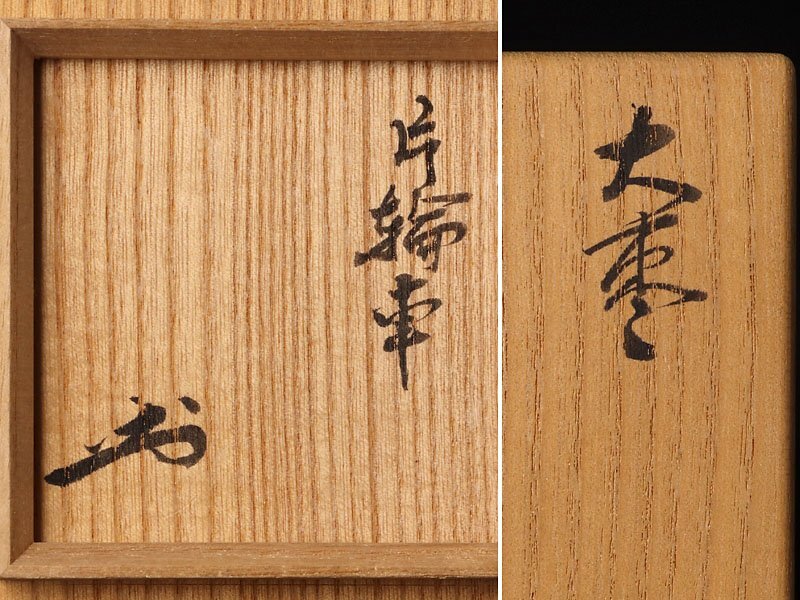 片輪車
大棗